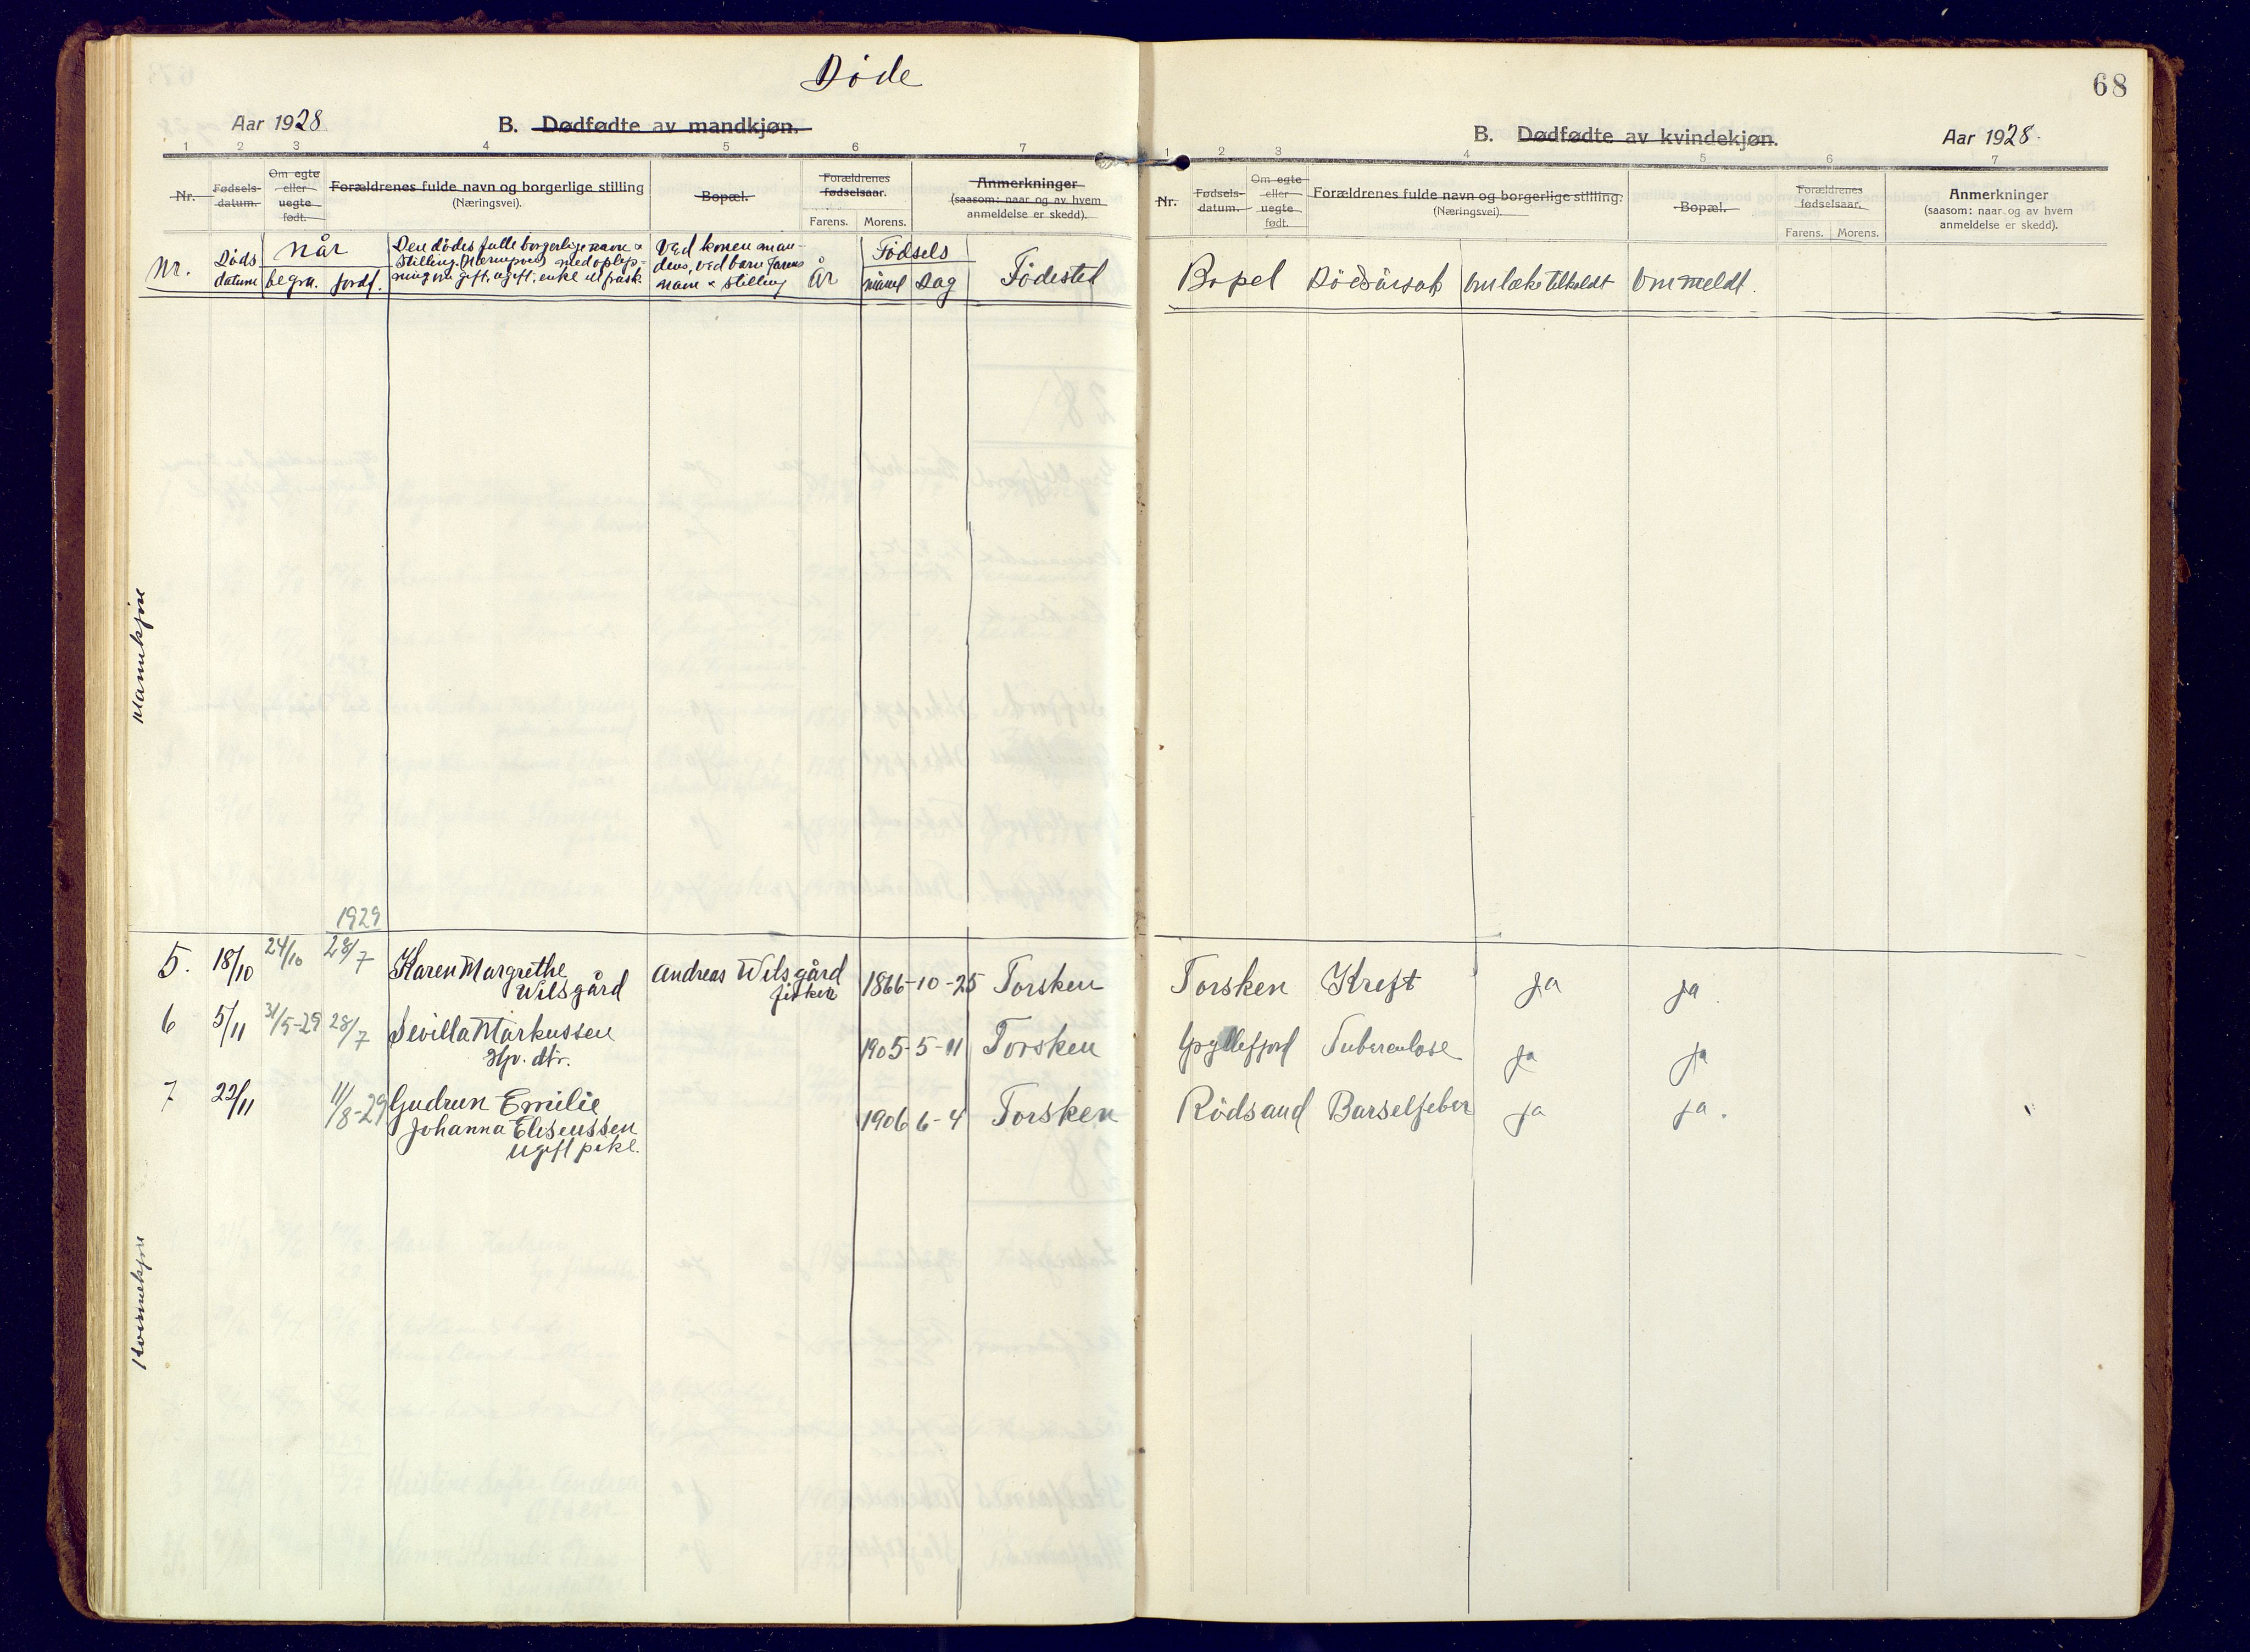 Døde
68
Aar 1928
B. Dødfødte av mandkjøn.
B. Dødfødte av kvindekjøn.
Aar 1928.
1 2 3 4 5 6 7
1 2 3 4 5 6 7
Nr.
Fødsels-
datum.
Om egte
eller
uegte
født.
Forældrenes fulde navn og borgerlige stilling
(Næringsvei).
Bopæl.
Forældrenes
fødselsaar.
Farens. Morens.
Anmerkninger
(saasom: naar og av hvem
anmeldelse er skedd).
Nr.
Fødsels-
datum.
Om egte
eller
uegte
født.
Forældrenes fulde navn og borgerlige stilling.
(Næringsvei).
Bopæl.
Forældrenes
fødselsaar.
Farens. Morens.
Anmerkninger
(saasom: naar og av hvem
anmeldelse er skedd).
Nr.
Døds
datum
når
begra. jordf.
Den dødes fulle borgerlige navn &
stilling
gift, ugift, enke el frask.
Ved konen man-
dens, ved barn farens
navn & stilling
År
Fødsels
måned Dag
Fødested
Bopel
Dødsårsak
Om læke tilkaldt
Om meldt.
Mannkjøn
1929
5. 18/10 24/10 28/7 Karen Margrethe
Wilsgård
Andreas Wilsgård
fisker
1866-10-25 Torsken Torsken Kreft ja ja.
6 5/11 31/5-29 28/7 Sevilla Markussen
Hp. dtr.
1905-5-11 Torsken Gryllefjord Tuberculose ja ja
7 22/11 11/8-29 Gudrun Emilie
Johanna Eliseussen
Ugift pike.
1906 6-4 Torsken Rödsand Barselfeber ja ja.
Kvinnekjøn